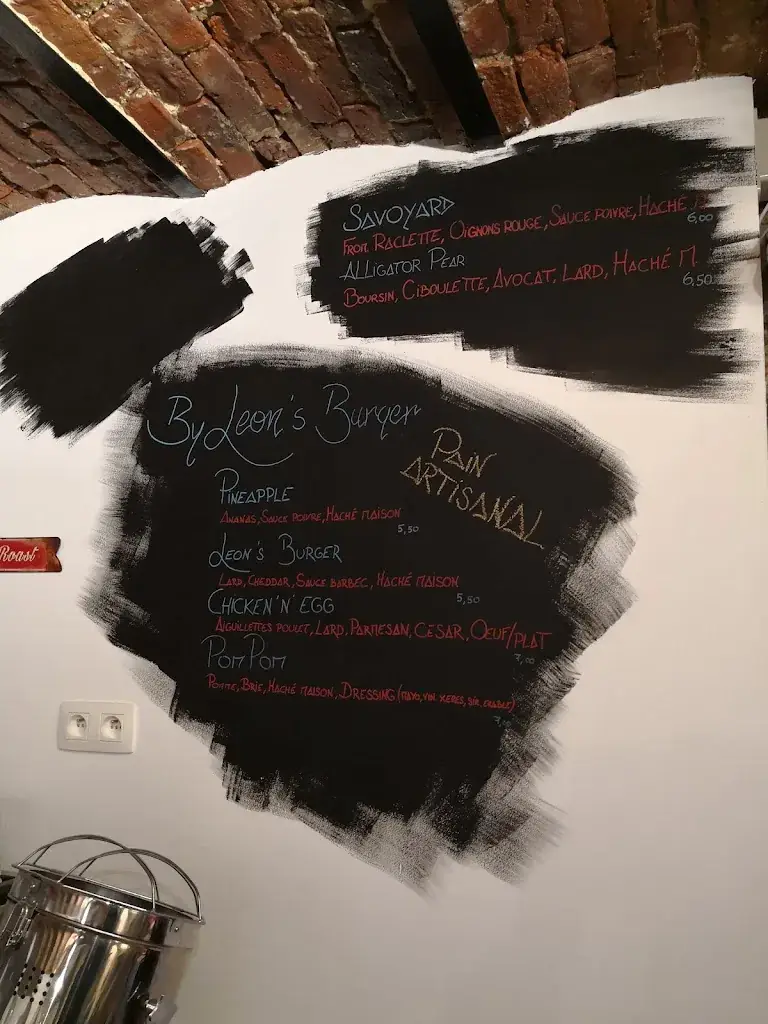 SAVOYARD
FROM. RACLETTE, OIGNONS ROUGE, SAUCE POIVRE, HACHÉ
6,00
ALLIGATOR PEAR
BOURSIN, CIBOULETTE, AVOCAT, LARD, HACHÉ M
6,50
By Leon's Burger
PAIN
ARTISANAL
PINEAPPLE
ANANAS, SAUCE POIVRE, HACHÉ MAISON
5,50
LEON'S BURGER
LARD, CHEDDAR, SAUCE BARBEC, HACHÉ MAISON
5,50
CHICKEN'N'EGG
AIGUILLETTES POULET, LARD, PARMESAN, CESAR, OEUF/PLAT
7,00
POMPOM
POMME, BRIE, HACHÉ MAISON, DRESSING (MAYO, VIN. XERES, SIR. ERABLE)
7,00
Roast